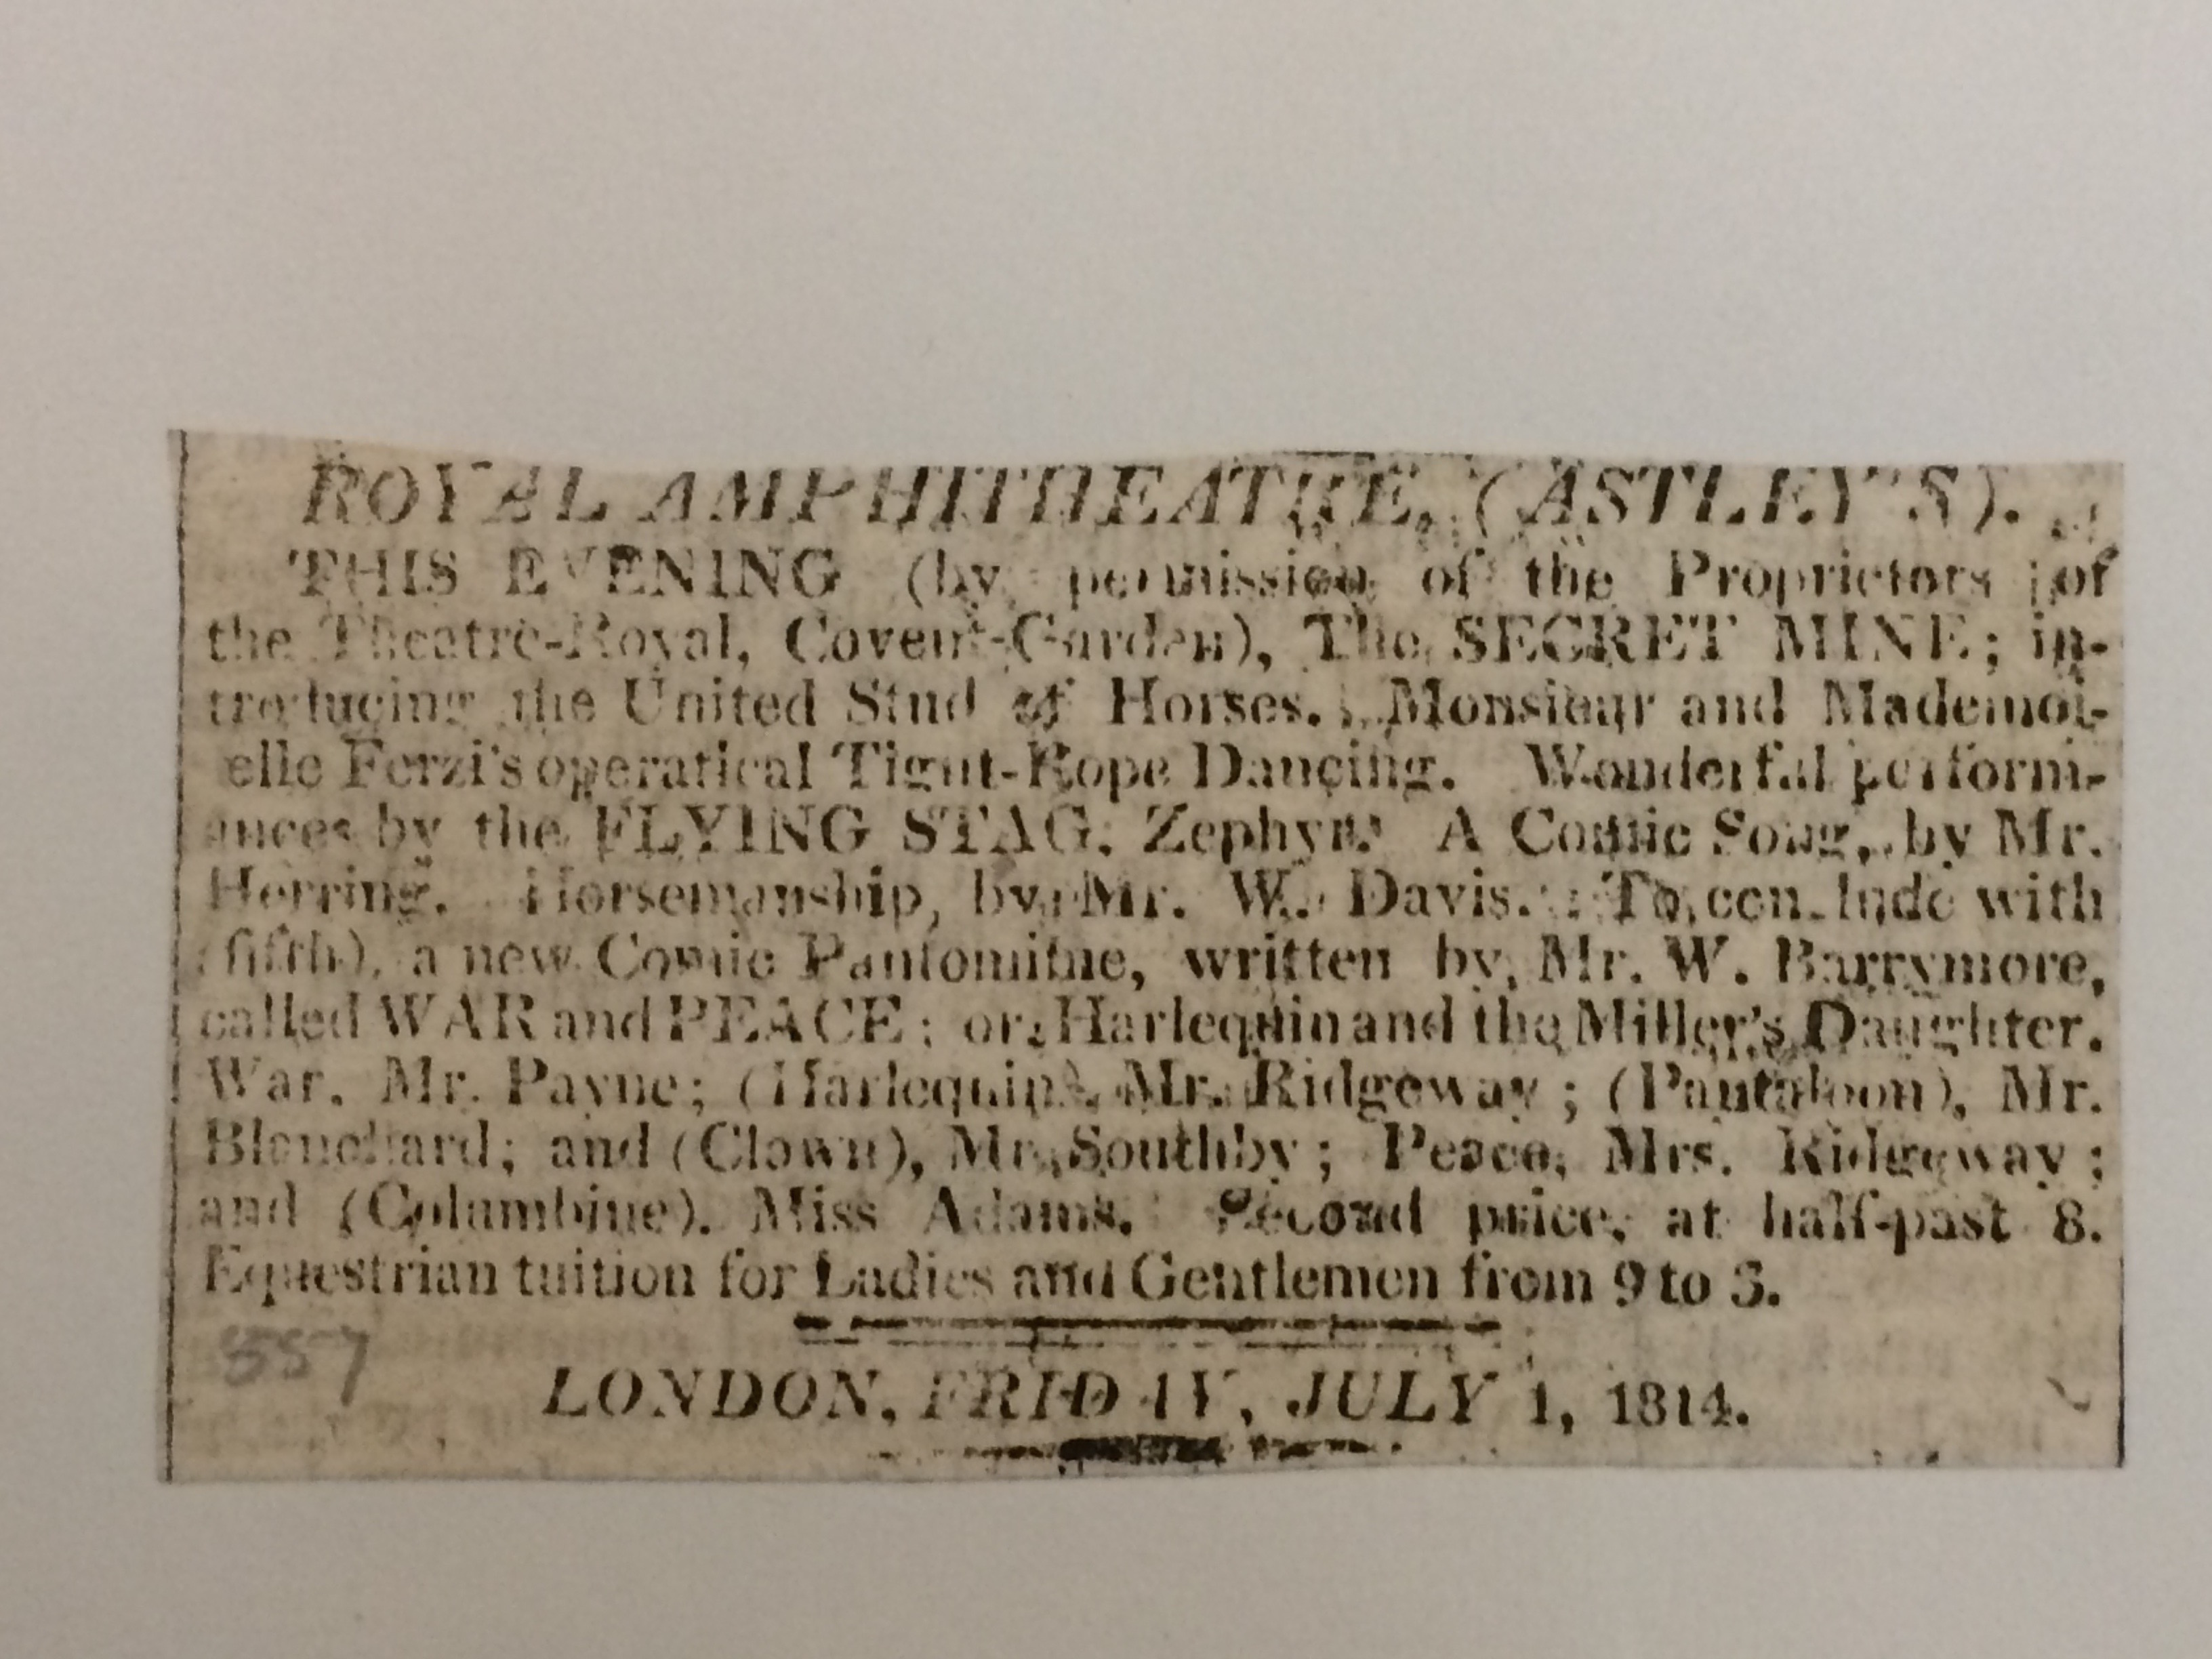 ROYAL AMPHITHEATRE, (ASTLEY'S).
THIS EVENING (by permission of the Proprietors of
the Theatre-Royal, Covent-Garden), The SECRET MINE; in-
troducing the United Stud of Horses. Monsieur and Mademoi-
elle Ferzi's operatical Tight-Rope Dancing. Wonderful perform-
ances by the FLYING STAG, Zephyr. A Comic Song, by Mr.
Herring. Horsemanship, by Mr. W. Davis. To conclude with
(fifth), a new Comic Pantomime, written by Mr. W. Barrymore,
called WAR and PEACE; or, Harlequin and the Miller's Daughter.
War, Mr. Payne; (Harlequin), Mr. Ridgeway; (Pantaloon), Mr.
Blanchard; and (Clown), Mr. Southby; Peace, Mrs. Ridgeway;
and (Columbine), Miss Adams. Second price, at half-past 8.
Equestrian tuition for Ladies and Gentlemen from 9 to 3.
557
LONDON, FRIDAY, JULY 1, 1814.